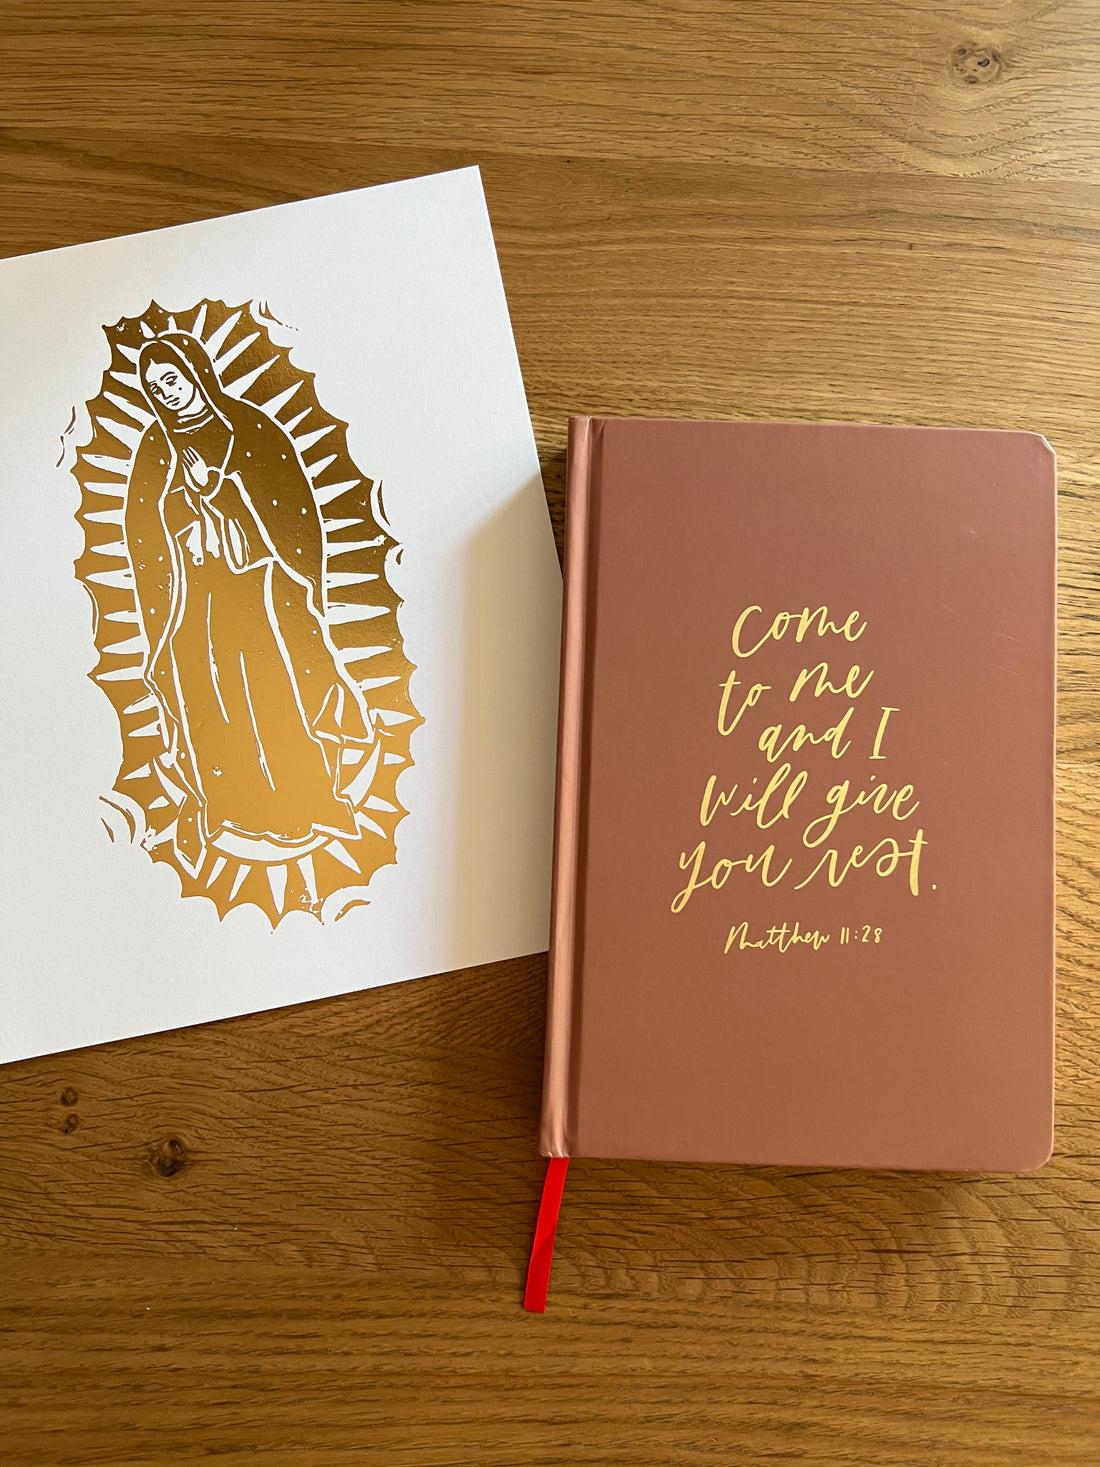 come
to me
and I
will give
you rest.
Matthew 11:28